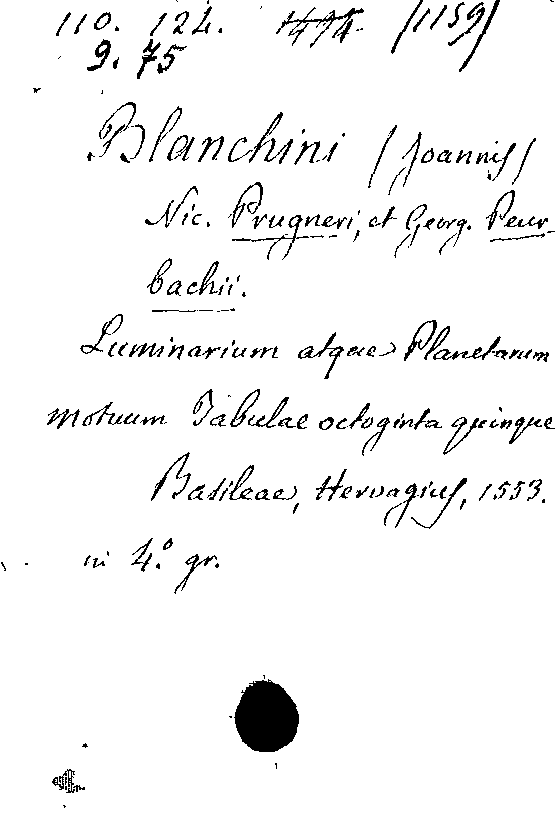 110. 124. 1474 /1159/
9. 75
Blanchini /Joannis/
Nic. Prugneri, et Georg. Peur
bachii.
Luminarium atque Planetarum
motuum Tabulae octoginta quinque
Basileae, Hervagius, 1553.
in 4.° gr.